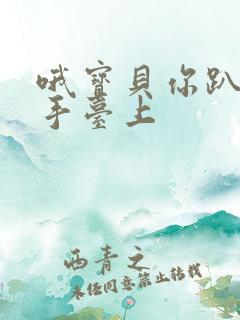 哦寳貝你趴
手臺上
西青之
未经同意禁止转载